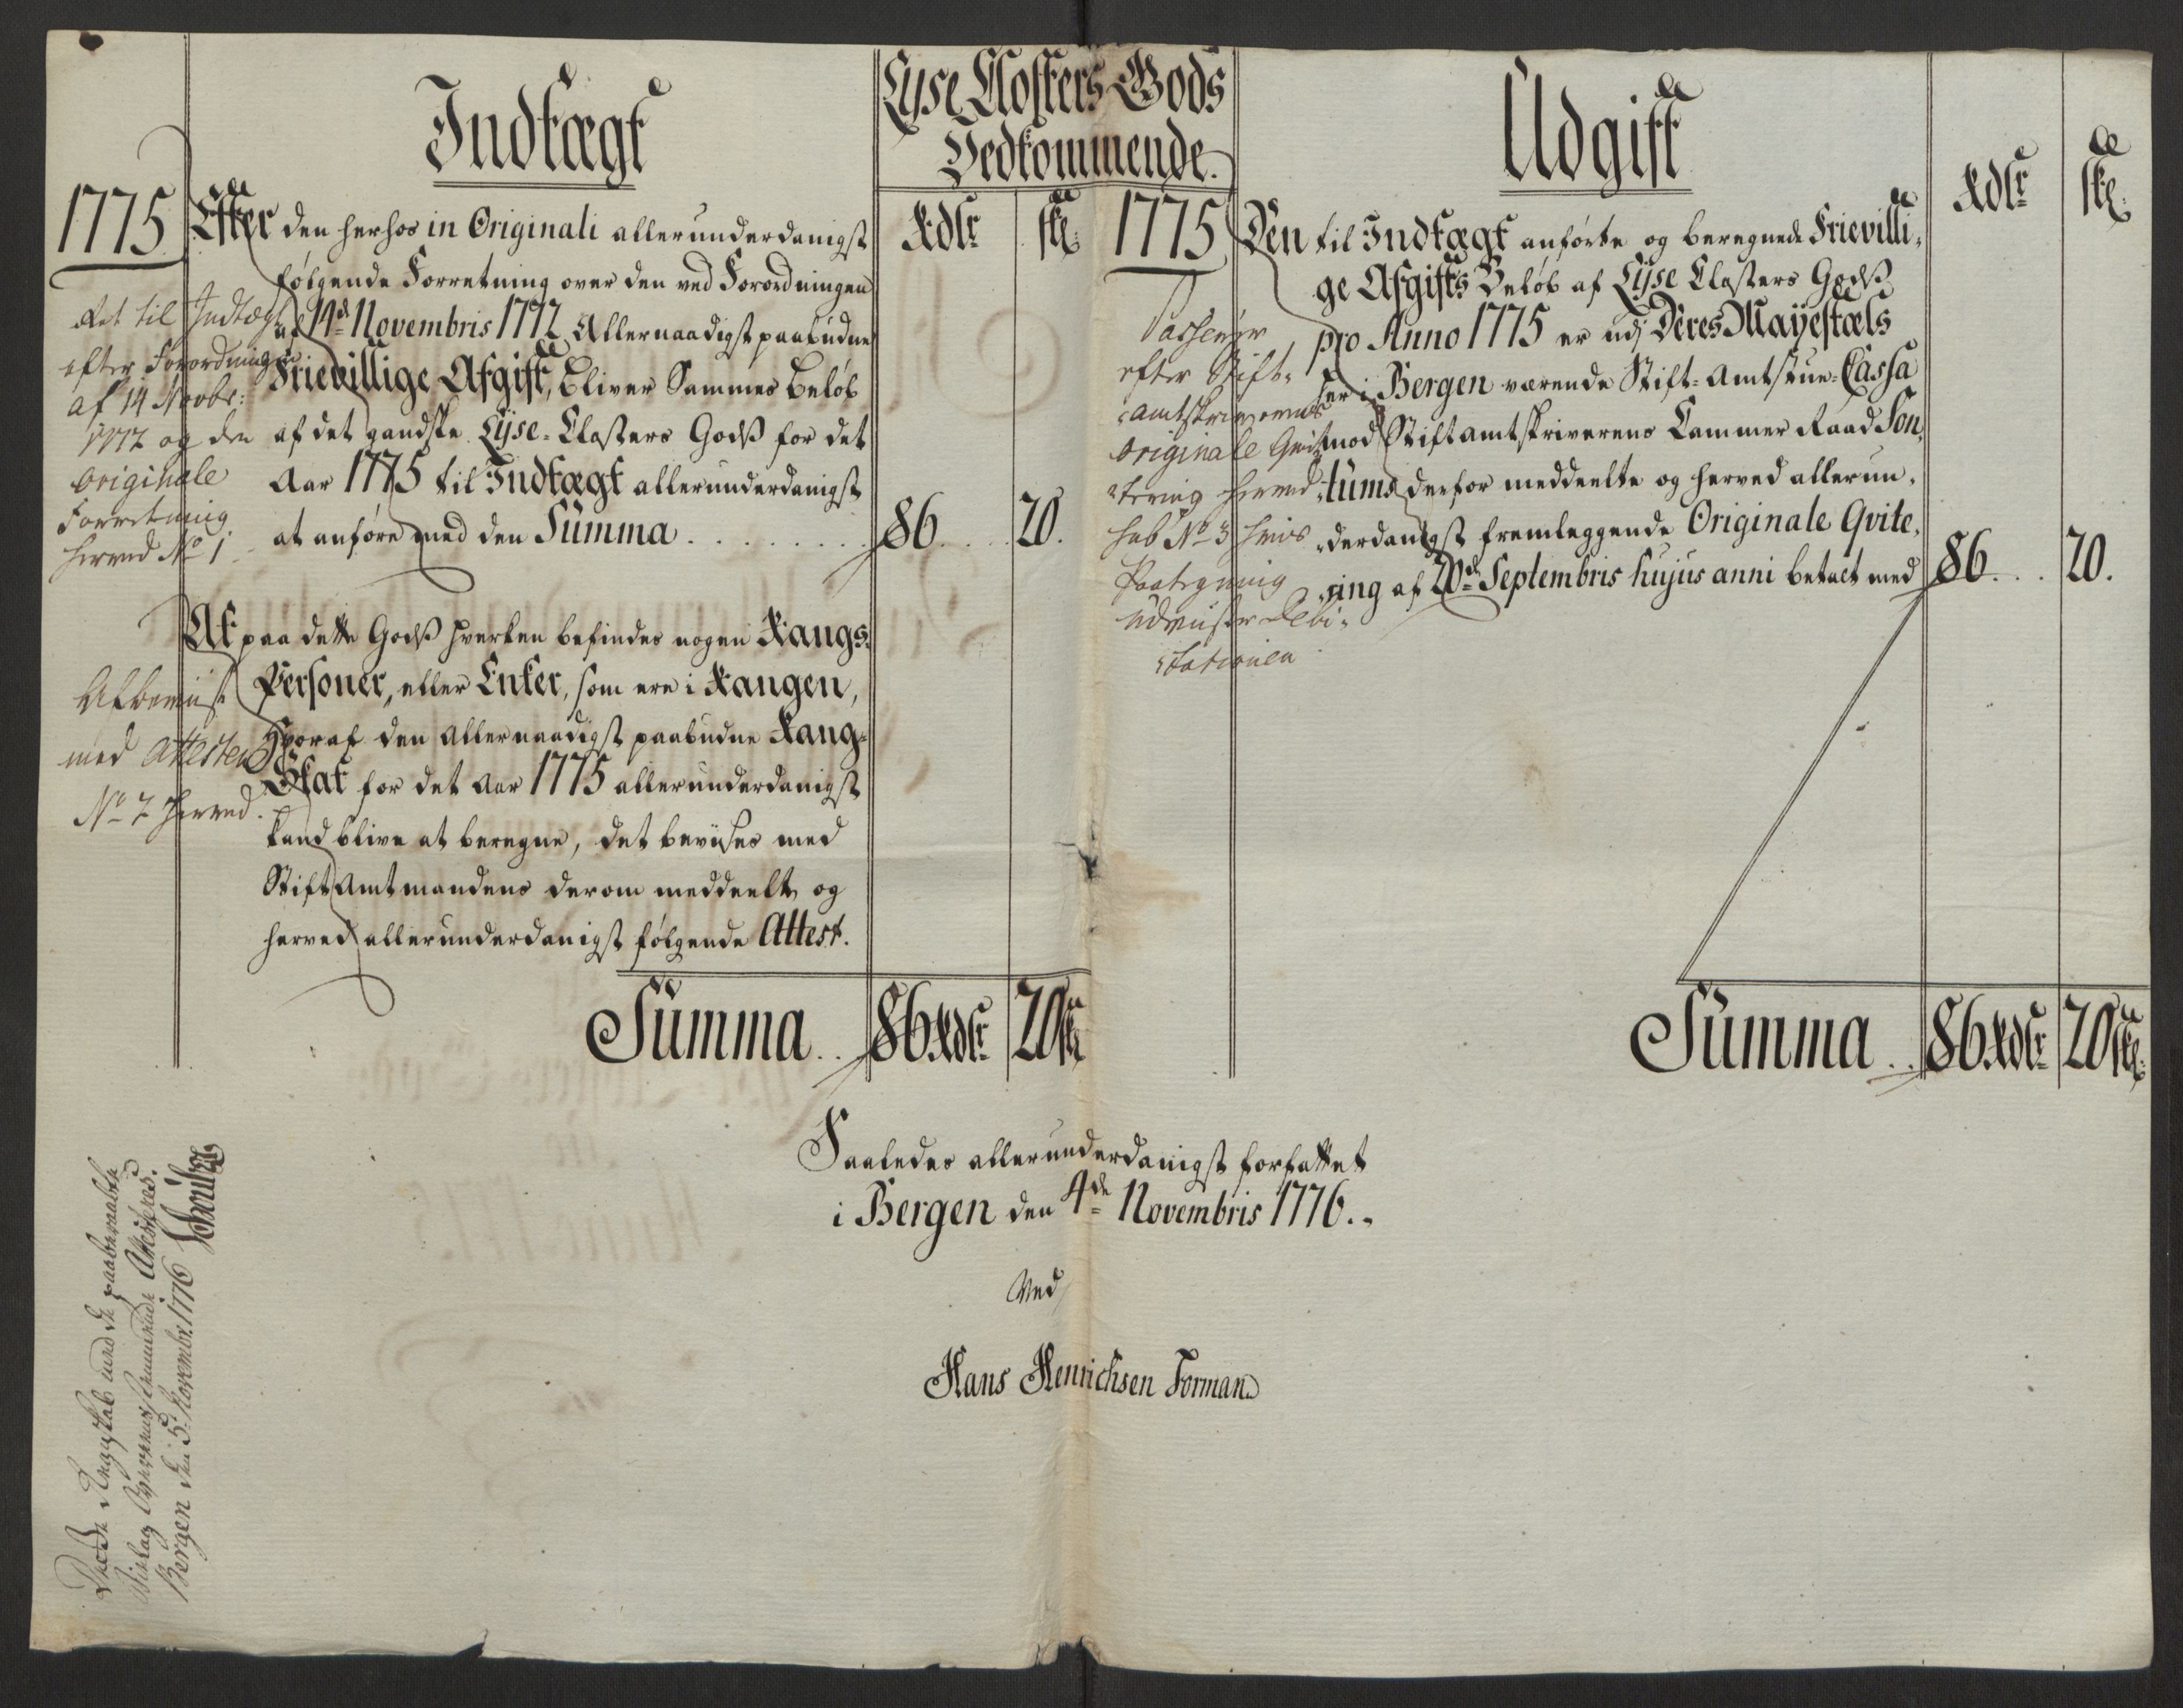 Lyse Closters Gods
Vedkommende.
Indtægt
Rdlr
sk:
1775
Efter den herhos in Originali allerunderdanigst
følgende Forretning over den ved Forordningen
af 14d Novembris 1772 Allernaadigst paabudne
Frievillige Afgift, bliver Sammes Beløb
af det gandske Lyse-Closters Godß for det
Aar 1775 til Indtægt allerunderdanigst
at anføre med den Summa . . . . . . . 86. . . 20.
Ret til Indtægt
efter Forordningen
af 14 Novbr:
1772 og den
originale
Forretning
herved No 1
At paa dette Godß hverken befindes nogen Rangs-
Personer, eller Enker, som ere i Rangen,
hvoraf den allernaadigst paabudne Rang-
Skat for det Aar 1775 allerunderdanigst
kand blive at beregne, det beviises med
Stift Amtmandens derom meddeelte og
herved allerunderdanigst følgende Attest.
Afbeviist
med Attesten
No 2 herved.
Summa . . 86 Rdlr 20 sk
Udgift
Rdlr
sk:
1775
Den til Indtægt anførte og beregnede Frievilli-
ge Afgifts Beløb af Lyse Closters Godß
pro Anno 1775 er udj Deres Mayestæts
her i Bergen værende Stift-Amtstue-Cassa
mod Stiftamtskriverens Cammer Raad Son-
tums derfor meddeelte og herved allerun-
derdanigst fremleggende Originale Qvite-
ring af 20d Septembris hujus anni betalt med 86. . . 20.
Passerer
efter Stift-
amtskriverens
originale Qvit-
tering herved
sub No 3 hvis
Paategning
udviiser Debi-
tationen
Summa . . 86 Rdlr 20 sk:
Saaledes allerunderdanigst forfattet
i Bergen den 4de Novembris 1776.
Ved
Hans Henrichsen Forman
Dette Regnskab med de paaberaabte
Bilag
Attesteres.
Bergen den 5 Novembr. 1776 Schouboe